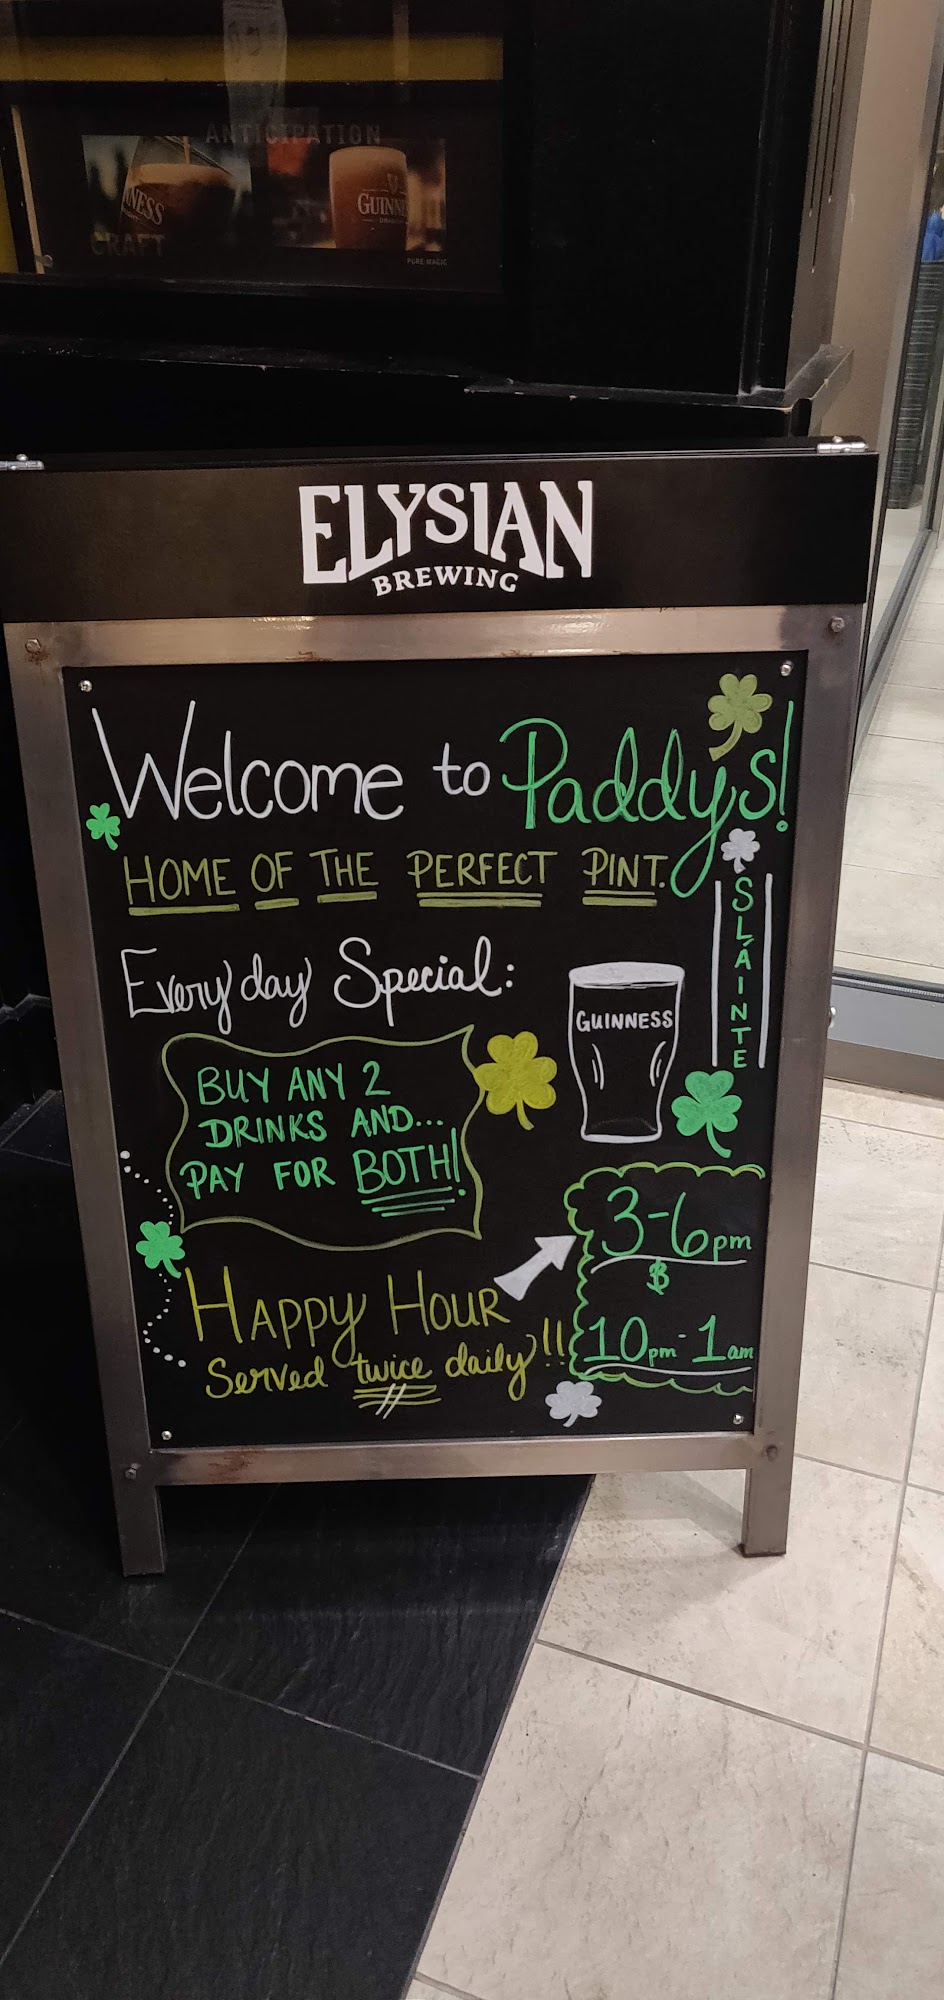 ANTICIPATION
GUINNE
CRAFT
PURE MAGIC
ELYSIAN
BREWING
Welcome to Paddy's!
HOME OF THE PERFECT PINT.
SLÁINTE
Everyday Special:
GUINNESS
BUY ANY 2
DRINKS AND...
PAY FOR BOTH!
3-6pm
&
10pm-1am
HAPPY HOUR
Served twice daily!!